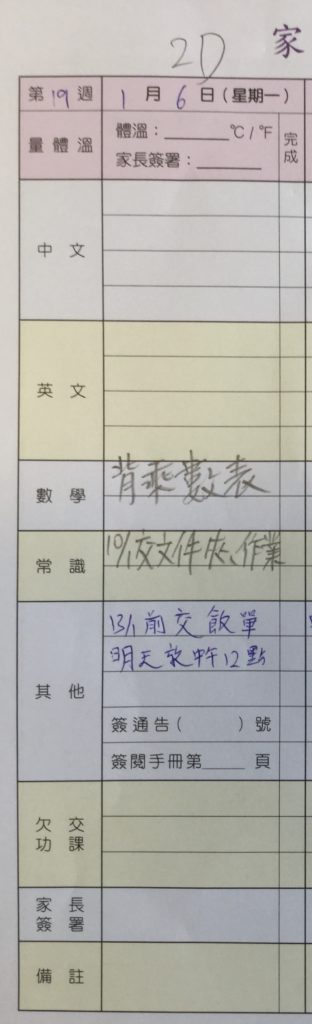 2D
家
第19週 1月6日(星期一)
量體溫 體溫:______℃/℉ 完成
家長簽署:______
中文
英文
數學 背乘數表
常識 10/1交文件夾、作業
其他 13/1前交飯單
明天放中午12點
簽通告( )號
簽閱手冊第____頁
欠交功課
家長簽署
備註